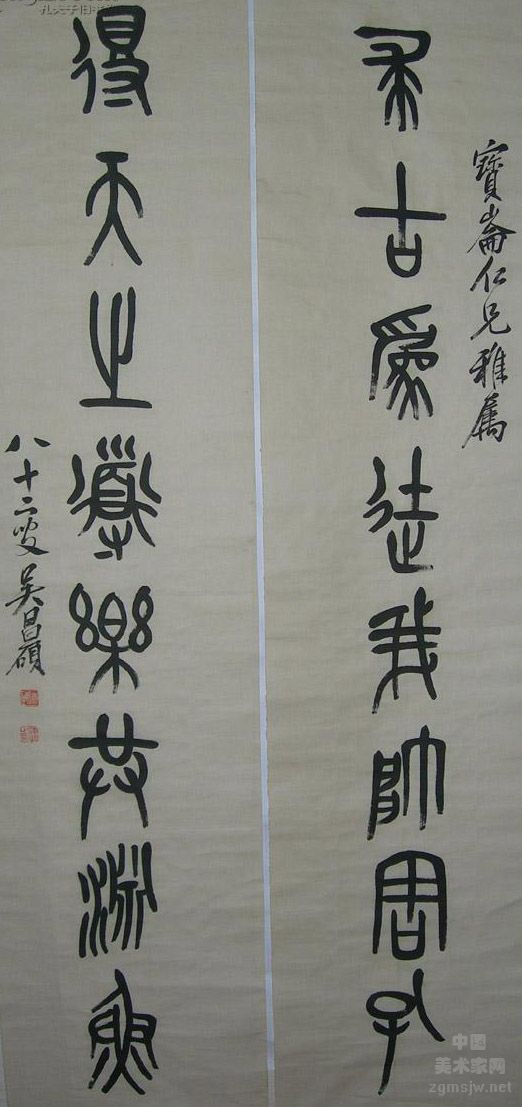 寶崙仁兄雅屬
古為徒我帥周孔
得天之導樂共淵魚
八十二叟吳昌碩
中国
美术家网
zgmsjw.net